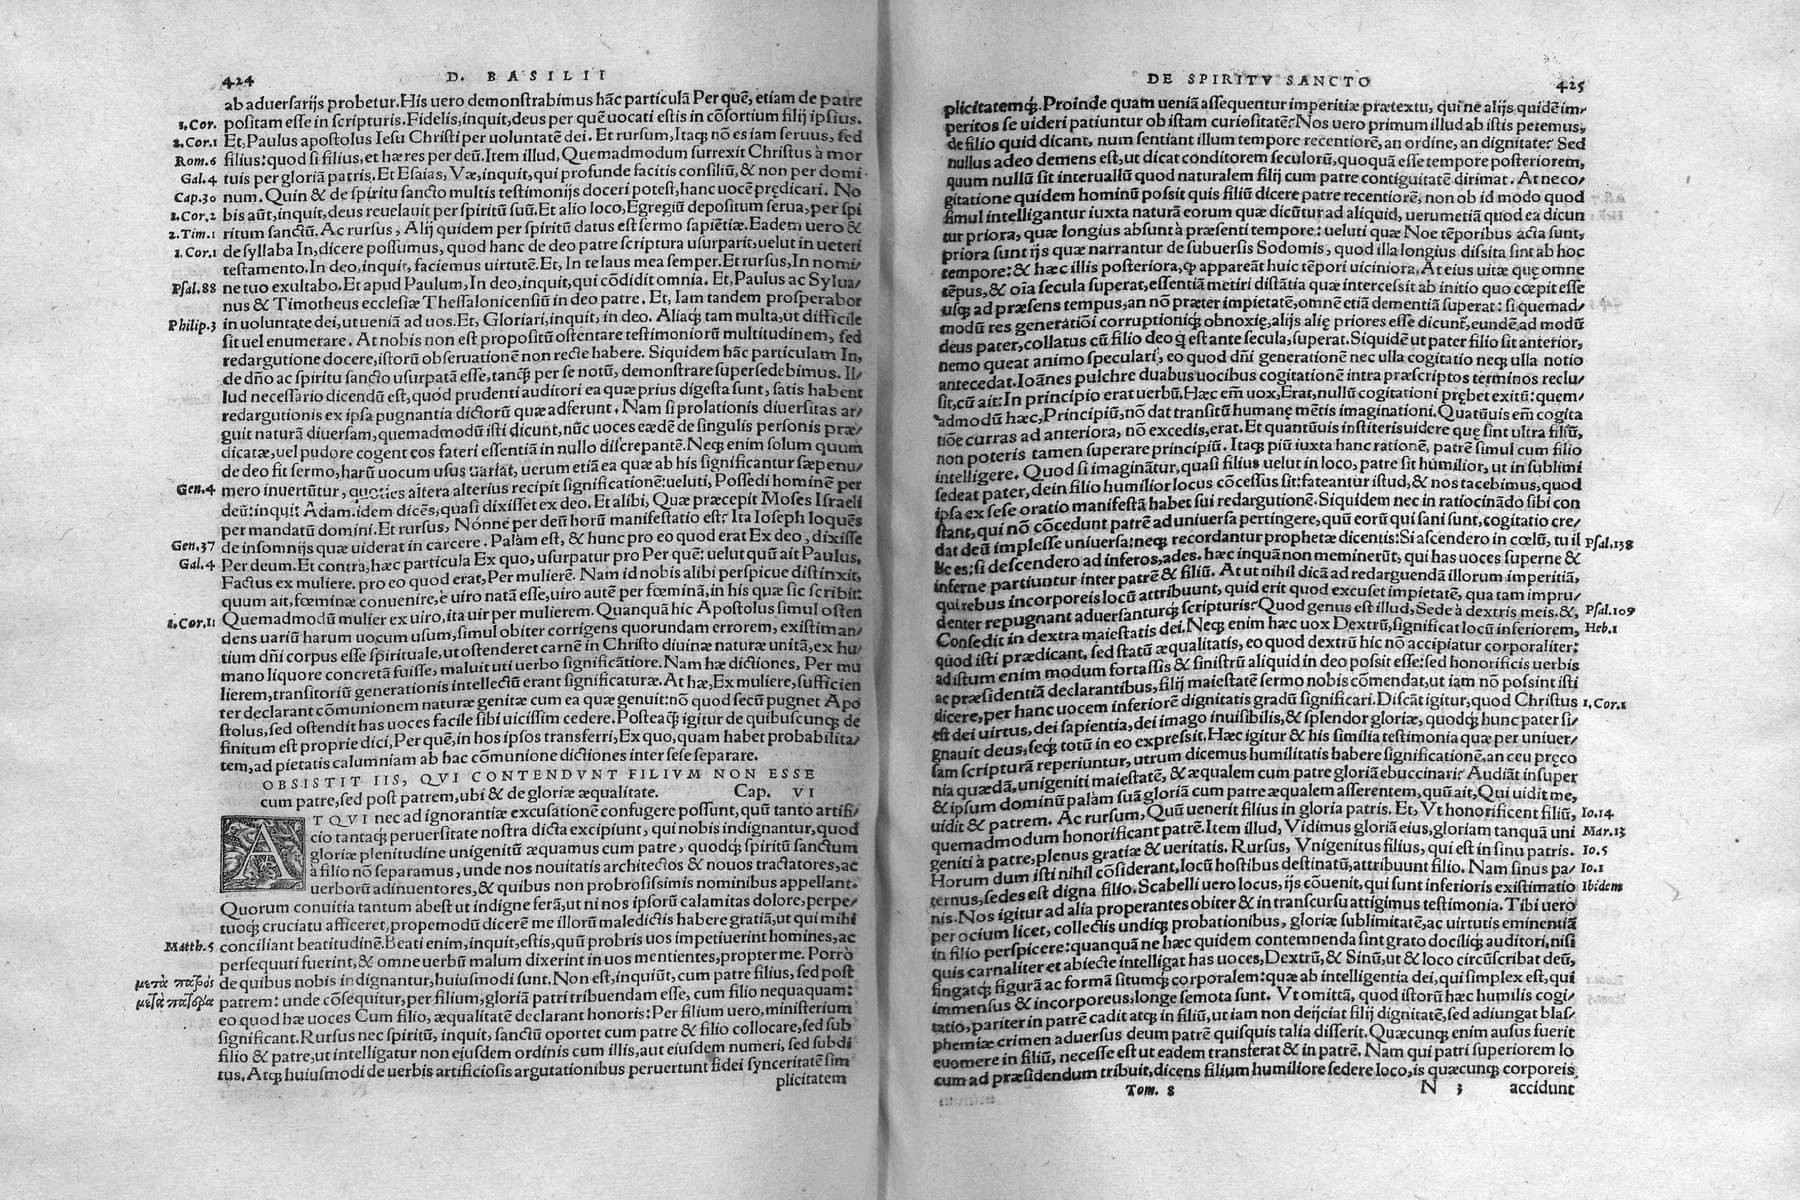 424
D. BASILII
ab aduersarijs probetur. His uero demonstrabimus hāc particulā Per quē, etiam de patre
1. Cor. positam esse in scripturis. Fidelis, inquit, deus per quē uocati estis in cōsortium filij ipsius.
2. Cor. 1 Et, Paulus apostolus Iesu Christi per uoluntatē dei. Et rursum, Itaq; nō es iam seruus, sed
Rom. 6 filius: quod si filius, et hæres per deū. Item illud, Quemadmodum surrexit Christus à mor
Gal. 4 tuis per gloriā patris. Et Esaias, Væ, inquit, qui profunde facitis consiliū, & non per domi
Cap. 30 num. Quin & de spiritu sancto multis testimonijs doceri potest, hanc uocē prędicari. No
1. Cor. 2 bis aūt, inquit, deus reuelauit per spiritū suū. Et alio loco, Egregiū depositum serua, per spi
2. Tim. 1 ritum sanctū. Ac rursus, Alij quidem per spiritū datus est sermo sapiētiæ. Eadem uero &
1. Cor. 1 de syllaba In, dicere possumus, quod hanc de deo patre scriptura usurparit, uelut in ueteri
testamento. In deo, inquit, faciemus uirtutē. Et, In te laus mea semper. Et rursus, In nomi/
Psal. 88 ne tuo exultabo. Et apud Paulum, In deo, inquit, qui cōdidit omnia. Et, Paulus ac Sylua/
nus & Timotheus ecclesiæ Thessalonicensiū in deo patre. Et, Iam tandem prosperabor
Philip. 3 in uoluntate dei, ut ueniā ad uos. Et, Gloriari, inquit, in deo. Aliaq; tam multa, ut difficile
sit uel enumerare. At nobis non est propositū ostentare testimoniorū multitudinem, sed
redargutione docere, istorū obseruationē non recte habere. Siquidem hāc particulam In,
de dño ac spiritu sancto usurpatā esse, tanq̃ per se notū, demonstrare supersedebimus. Il/
lud necessario dicendū est, quòd prudenti auditori ea quæ prius digesta sunt, satis habent
redargutionis ex ipsa pugnantia dictorū quæ adferunt. Nam si prolationis diuersitas ar/
guit naturā diuersam, quemadmodū isti dicunt, nūc uoces eædē de singulis personis præ/
dicatæ, uel pudore cogent eos fateri essentiā in nullo discrepantē. Neq; enim solum quum
de deo fit sermo, harū uocum usus uariat, uerum etiā ea quæ ab his significantur sæpenu/
Gen. 4 mero inuertūtur, quoties altera alterius recipit significationē: ueluti, Possedi hominē per
deū: inquit Adam. idem dicēs, quasi dixisset ex deo. Et alibi, Quæ præcepit Moses Israeli
per mandatū domini. Et rursus, Nónne per deū horū manifestatio est? Ita Ioseph loquēs
Gen. 37 de insomnijs quæ uiderat in carcere. Palàm est, & hunc pro eo quod erat Ex deo, dixisse
Gal. 4 Per deum. Et contra, hæc particula Ex quo, usurpatur pro Per quē: uelut quū ait Paulus,
Factus ex muliere. pro eo quod erat, Per mulierē. Nam id nobis alibi perspicue distinxit,
quum ait, fœminæ conuenire, è uiro natā esse, uiro autē per fœminā, in his quæ sic scribit:
1. Cor. 11 Quemadmodū mulier ex uiro, ita uir per mulierem. Quanquā hic Apostolus simul osten
dens uariū harum uocum usum, simul obiter corrigens quorundam errorem, existiman/
tium dñi corpus esse spirituale, ut ostenderet carnē in Christo diuinæ naturæ unitā, ex hu/
mano liquore concretā fuisse, maluit uti uerbo significātiore. Nam hæ dictiones, Per mu
lierem, transitoriū generationis intellectū erant significaturæ. At hæ, Ex muliere, sufficien
ter declarant cōmunionem naturæ genitæ cum ea quæ genuit: nō quod secū pugnet Apo
stolus, sed ostendit has uoces facile sibi uicissim cedere. Posteaq̃ igitur de quibuscunq; de
finitum est proprie dici, Per quē, in hos ipsos transferri, Ex quo, quam habet probabilita/
tem, ad pietatis calumniam ab hac cōmunione dictiones inter sese separare.
OBSISTIT IIS, QVI CONTENDVNT FILIVM NON ESSE
cum patre, sed post patrem, ubi & de gloriæ æqualitate. Cap. VI
ATQVI nec ad ignorantiæ excusationē confugere possunt, quū tanto artifi/
cio tantaq; peruersitate nostra dicta excipiunt, qui nobis indignantur, quod
gloriæ plenitudine unigenitū æquamus cum patre, quodq; spiritū sanctum
à filio nō separamus, unde nos nouitatis architectos & nouos tractatores, ac
uerborū adinuentores, & quibus non probrosissimis nominibus appellant.
Quorum conuitia tantum abest ut indigne ferā, ut ni nos ipsorū calamitas dolore, perpe/
tuoq; cruciatu afficeret, propemodū dicerē me illorū maledictis habere gratiā, ut qui mihi
Matth. 5 conciliant beatitudinē. Beati enim, inquit, estis, quū probris uos impetiuerint homines, ac
persequuti fuerint, & omne uerbū malum dixerint in uos mentientes, propter me. Porrò
μετὰ πατρός de quibus nobis indignantur, huiusmodi sunt. Non est, inquiūt, cum patre filius, sed post
μετὰ πατέρα patrem: unde cōsequitur, per filium, gloriā patri tribuendam esse, cum filio nequaquam:
eo quod hæ uoces Cum filio, æqualitatē declarant honoris: Per filium uero, ministerium
significant. Rursus nec spiritū, inquit, sanctū oportet cum patre & filio collocare, sed sub
filio & patre, ut intelligatur non eiusdem ordinis cum illis, aut eiusdem numeri, sed subdi
tus. Atq; huiusmodi de uerbis artificiosis argutationibus peruertunt fidei synceritatē sim
plicitatem
DE SPIRITV SANCTO
425
plicitatemq;. Proinde quam ueniā assequentur imperitiæ prætextu, qui ne alijs quidē im/
peritos se uideri patiuntur ob istam curiositatē? Nos uero primum illud ab istis petemus,
de filio quid dicant, num sentiant illum tempore recentiorē, an ordine, an dignitate? Sed
nullus adeo demens est, ut dicat conditorem seculorū, quoquā esse tempore posteriorem,
quum nullū sit interuallū quod naturalem filij cum patre contiguitatē dirimat. At neco/
gitatione quidem hominū possit quis filiū dicere patre recentiorē, non ob id modo quod
simul intelligantur iuxta naturā eorum quæ dicūtur ad aliquid, uerumetiā quod ea dicun
tur priora, quæ longius absunt à præsenti tempore: ueluti quæ Noe tēporibus acta sunt,
priora sunt ijs quæ narrantur de subuersis Sodomis, quod illa longius dissita sint ab hoc
tempore: & hæc illis posteriora, q̃ appareāt huic tēpori uiciniora. At eius uitæ quę omne
tēpus, & oīa secula superat, essentiā metiri distātia quæ intercessit ab initio quo cœpit esse
usq; ad præsens tempus, an nō præter impietatē, omnē etiā dementiā superat: si quemad/
modū res generatiōi corruptioniq; obnoxię, alijs alię priores esse dicunt̃, eundē ad modū
deus pater, collatus cū filio deo q̇ est ante secula, superat. Siquidē ut pater filio sit anterior,
nemo queat animo speculari, eo quod dñi generationē nec ulla cogitatio neq; ulla notio
antecedat. Ioānes pulchre duabus uocibus cogitationē intra præscriptos terminos reclu/
sit, cū ait: In principio erat uerbū. Hæc em̃ uox, Erat, nullū cogitationi prębet exitū: quem/
admodū hæc, Principiū, nō dat transitū humanę mētis imaginationi. Quatūuis em̃ cogita
tiōe curras ad anteriora, nō excedis, erat. Et quantūuis institeris uidere quę sint ultra filiū,
non poteris tamen superare principiū. Itaq; piū iuxta hanc rationē, patrē simul cum filio
intelligere. Quod si imaginātur, quasi filius uelut in loco, patre sit humilior, ut in sublimi
sedeat pater, dein filio humilior locus cōcessus sit: fateantur istud, & nos tacebimus, quod
ipsa ex sese oratio manifestā habet sui redargutionē. Siquidem nec in ratiocinādo sibi con
stant, qui nō cōcedunt patrē ad uniuersa pertingere, quū eorū qui sani sunt, cogitatio cre/
dat deū implesse uniuersa: neq; recordantur prophetæ dicentis: Si ascendero in cœlū, tu il Psal. 138
lic es: si descendero ad inferos, ades. hæc inquā non meminerūt, qui has uoces superne &
inferne partiuntur inter patrē & filiū. At ut nihil dicā ad redarguendā illorum imperitiā,
qui rebus incorporeis locū attribuunt, quid erit quod excuset impietatē, qua tam impru/
denter repugnant aduersanturq; scripturis? Quod genus est illud, Sede à dextris meis. &, Psal. 109
Consedit in dextra maiestatis dei. Neq; enim hæc uox Dextrū, significat locū inferiorem, Heb. 1
quòd isti prædicant, sed statū æqualitatis, eo quod dextrū hic nō accipiatur corporaliter:
ad istum enim modum fortassis & sinistrū aliquid in deo possit esse: sed honorificis uerbis
ac præsidentiā declarantibus, filij maiestatē sermo nobis cōmendat, ut iam nō possint isti
dicere, per hanc uocem inferiorē dignitatis gradū significari. Discāt igitur, quod Christus 1. Cor. 1
est dei uirtus, dei sapientia, dei imago inuisibilis, & splendor gloriæ, quodq; hunc pater si/
gnauit deus, seq; totū in eo expressit. Hæc igitur & his similia testimonia quæ per uniuer/
sam scripturā reperiuntur, utrum dicemus humilitatis habere significationē, an ceu pręco
nia quædā, unigeniti maiestatē, & æqualem cum patre gloriā ebuccinari? Audiāt insuper
& ipsum dominū palàm suā gloriā cum patre æqualem asserentem, quū ait, Qui uidit me,
uidit & patrem. Ac rursum, Quū uenerit filius in gloria patris. Et, Vt honorificent filiū, Io. 14
quemadmodum honorificant patrē. Item illud, Vidimus gloriā eius, gloriam tanquā uni Mar. 13
geniti à patre, plenus gratiæ & ueritatis. Rursus, Vnigenitus filius, qui est in sinu patris. Io. 5
Horum dum isti nihil cōsiderant, locū hostibus destinatū, attribuunt filio. Nam sinus pa/ Io. 1
ternus, sedes est digna filio. Scabelli uero locus, ijs cōuenit, qui sunt inferioris existimatio Ibidem
nis. Nos igitur ad alia properantes obiter & in transcursu attigimus testimonia. Tibi uero
per ocium licet, collectis undiq; probationibus, gloriæ sublimitatē, ac uirtutis eminentiā
in filio perspicere: quanquā ne hæc quidem contemnenda sint grato dociliq; auditori, nisi
quis carnaliter et abiecte intelligat has uoces, Dextrū, & Sinū, ut & loco circūscribat deū,
fingatq; figurā ac formā situmq; corporalem: quæ ab intelligentia dei, qui simplex est, qui
immensus & incorporeus, longe semota sunt. Vt omittā, quod istorū hæc humilis cogi/
tatio, pariter in patrē cadit atq; in filiū, ut iam non deijciat filij dignitatē, sed adiungat blas/
phemiæ crimen aduersus deum patrē quisquis talia disserit. Quæcunq; enim ausus fuerit
euomere in filiū, necesse est ut eadem transferat & in patrē. Nam qui patri superiorem lo
cum ad præsidendum tribuit, dicens filium humiliore sedere loco, is quæcunq; corporeis
Tom. 8 N 3 accidunt